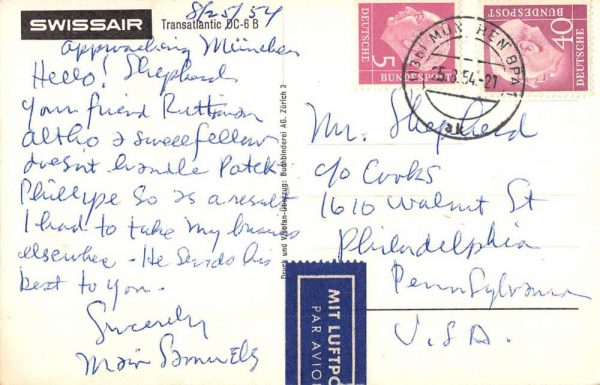 SWISSAIR
Transatlantic DC-6 B
8/25/54
approaching München
Hello! Shepherd
your friend
altho a swell fellow
doesn't handle Patek
Phillype So as a result
I had to take my business
elsewhere - He sends his
best to you -
Sincerely
Druck und Vitofan-Überzug: Buchbinderei AG. Zürich 3
5
DEUTSCHE
BUNDESPOST
40
DEUTSCHE
BUNDESPOST
MÜNCHEN BPA
.54.-21
ak
Mr. Shepherd
c/o Cooks
1610 Walnut St
Philadelphia
Pennsylvania
U.S.A.
MIT LUFTPO
PAR AVIO